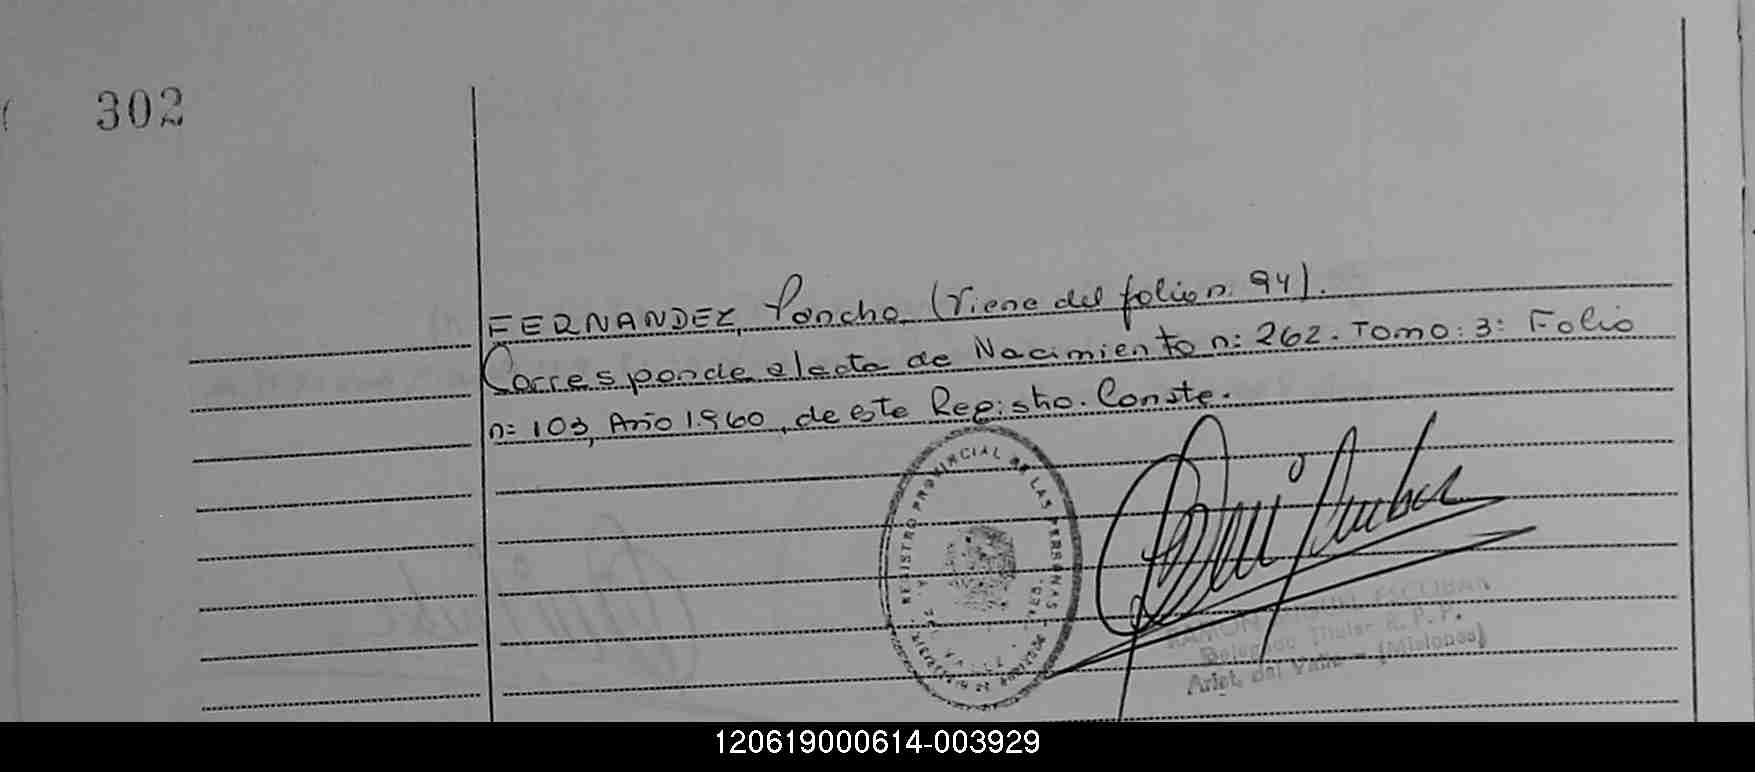 302
FERNANDEZ, Poncho (viene del folio n: 94).
Corresponde al acta de Nacimiento n: 262. Tomo: 3: Folio
n: 103, Año 1.960, de este Registro. Conste.
REGISTRO PROVINCIAL DE LAS PERSONAS
RAMON MIGUEL ESCOBAR
Delegado Titular R. P. P.
Arist. del Valle - (Misiones)
120619000614-003929